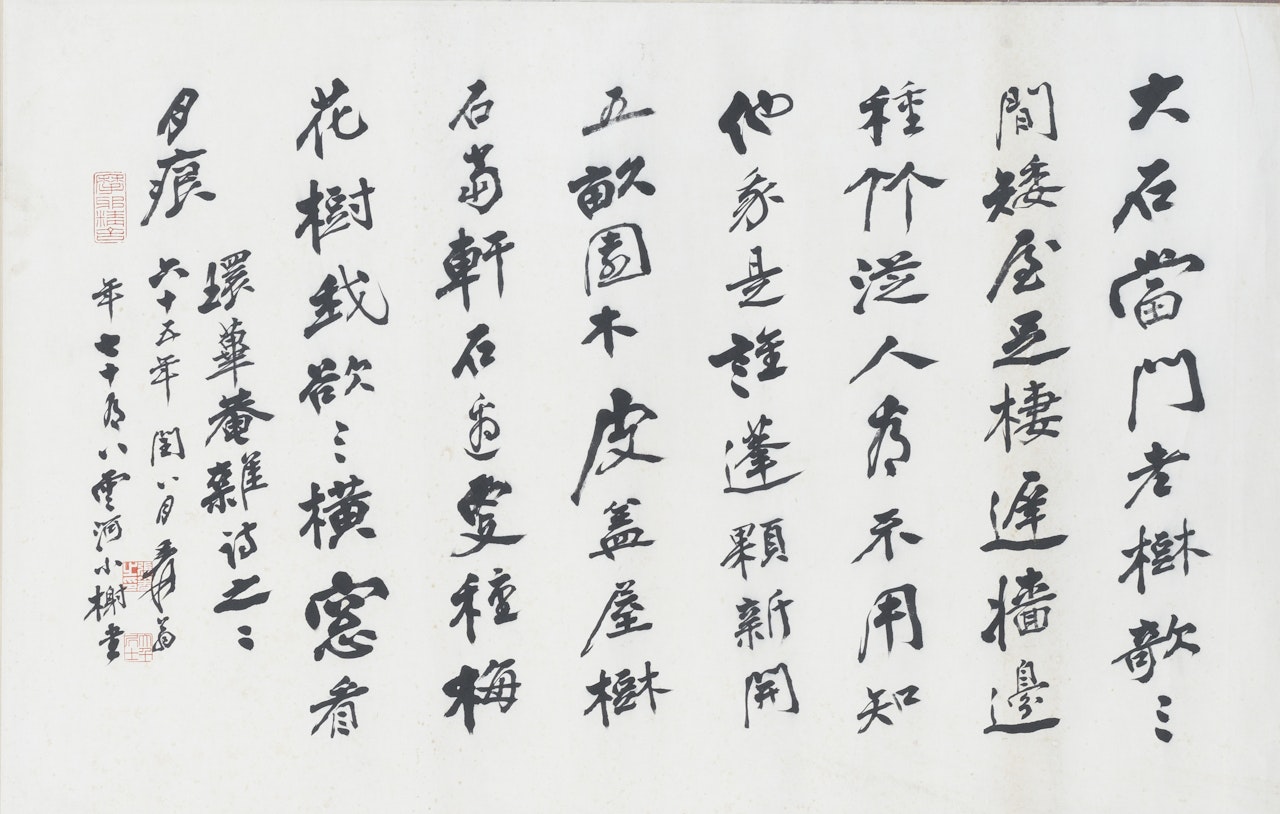 大石當門老樹欹三
間矮屋足棲遲牆邊
種竹從人有不用知
他家是誰蓬顆新開
五畝園木皮蓋屋樹
石當軒石邊更種梅
花樹我欲橫窓看
月痕
環蓽菴雜詩之二
六十五年閏八月爰翁
年七十有八雲河小榭書
摩耶精舍